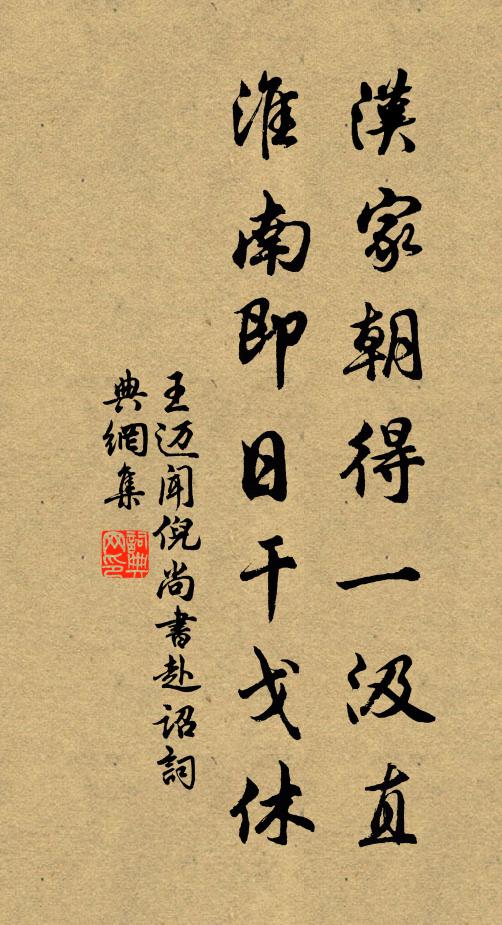 漢家朝得一汲直
淮南即日干戈休
王迈闻倪尚書赴诏詞
典網集
詞典网印